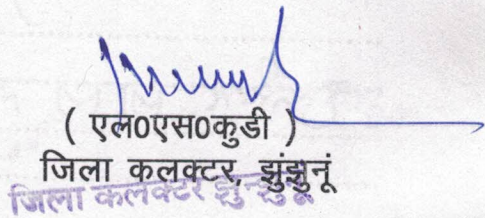 ( एल0एस0कुडी )
जिला कलक्टर, झुंझुनूं
जिला कलक्टर झुन्झुनू